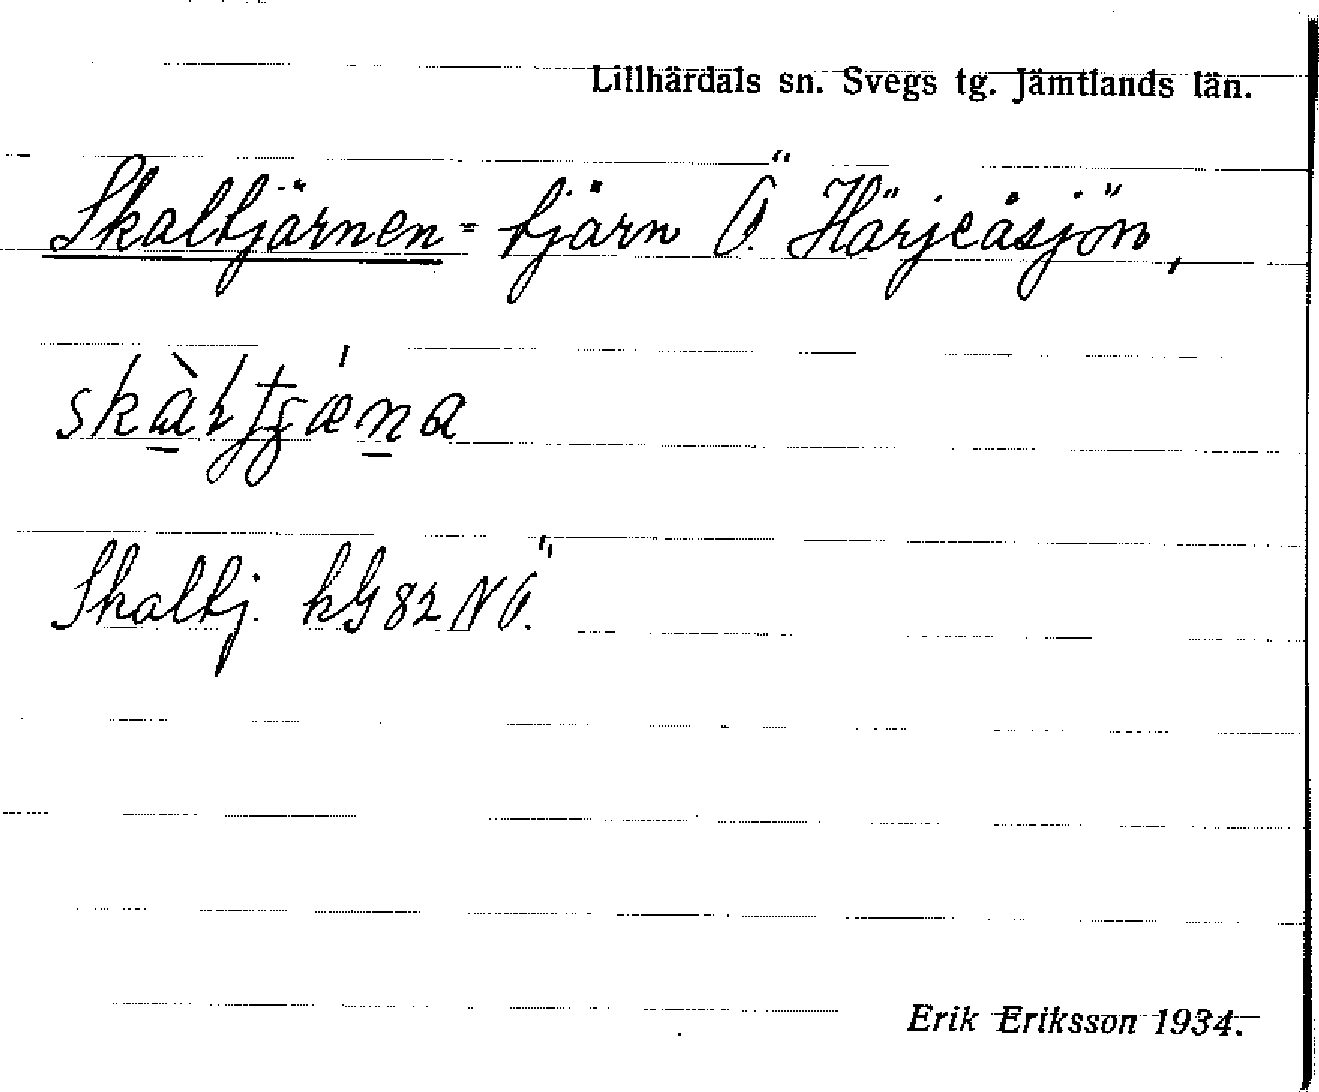 Lillhärdals sn. Svegs tg. Jämtlands län.
Skaltjärnen = tjärn Ö. Härjeåsjön,
Skaltj. kG 82 NÖ.
Erik Eriksson 1934.